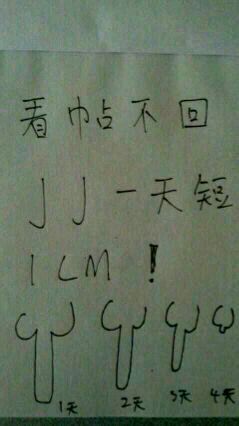 看帖不回
JJ一天短
1CM!
1天 2天 3天 4天